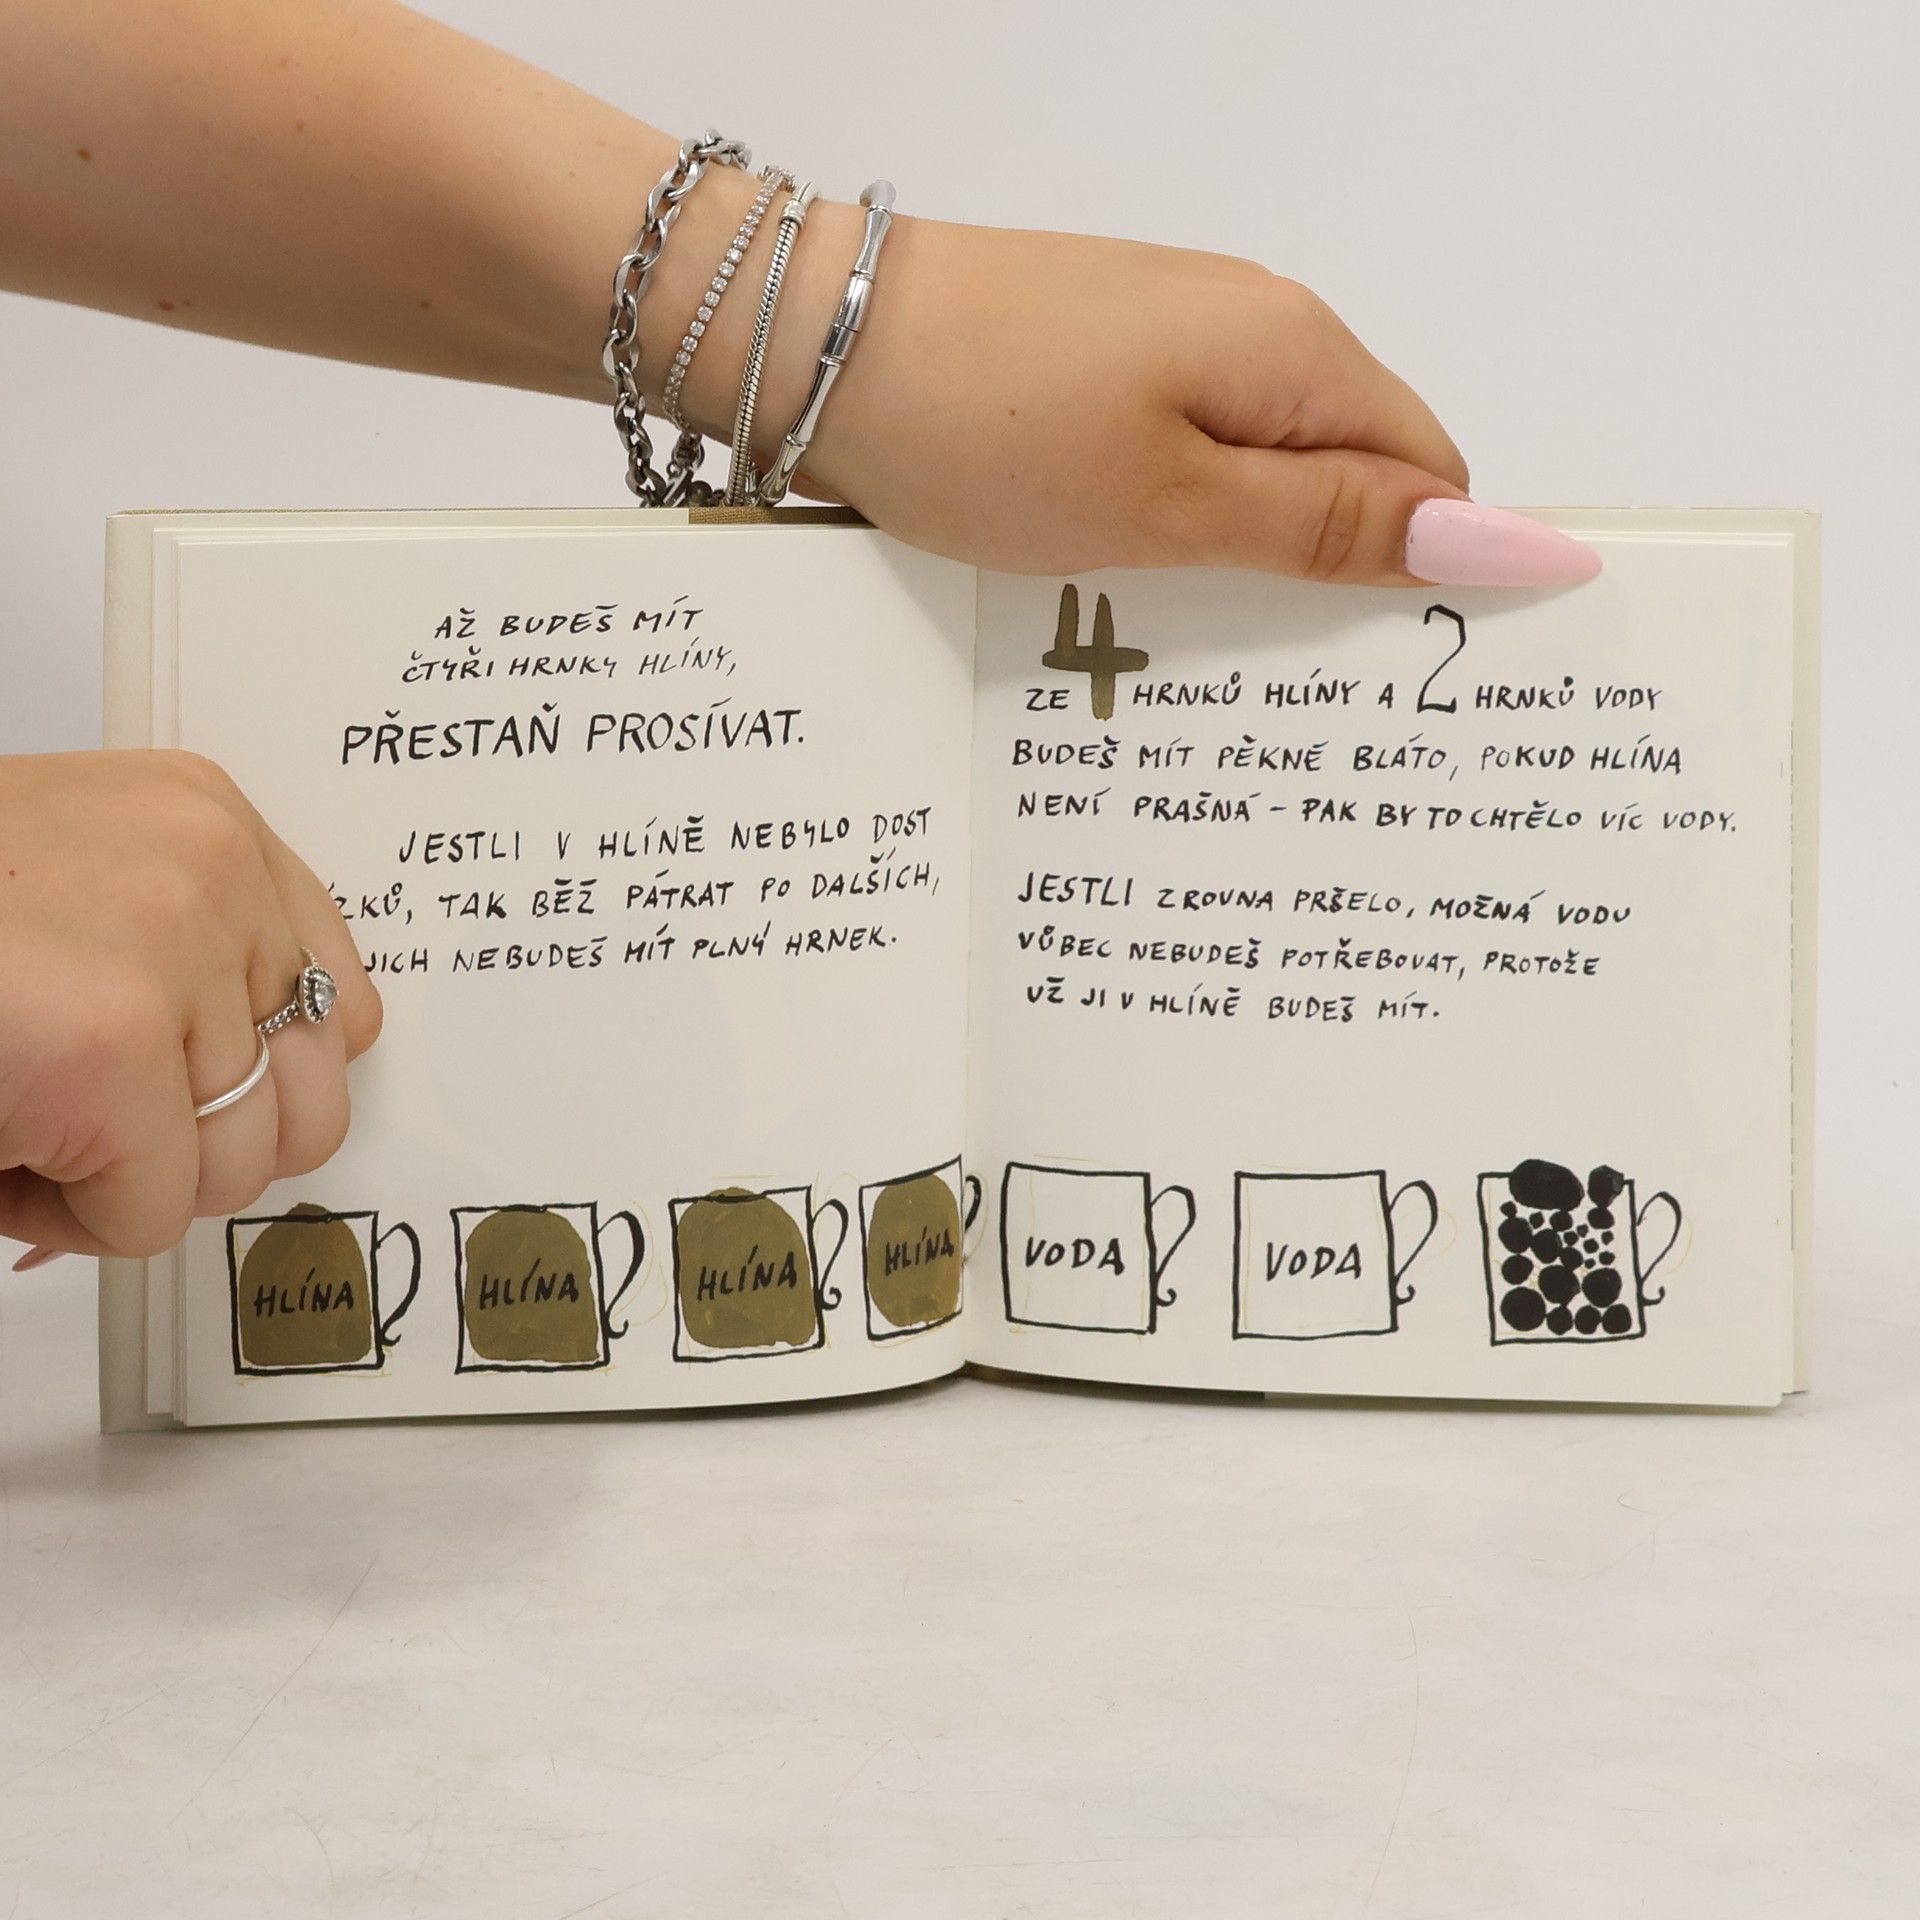 AŽ BUDEŠ MÍT
ČTYŘI HRNKY HLÍNY,
PŘESTAŇ PROSÍVAT.
JESTLI V HLÍNĚ NEBYLO DOST
TAK BĚŽ PÁTRAT PO DALŠÍCH,
JICH NEBUDEŠ MÍT PLNÝ HRNEK.
HLÍNA HLÍNA HLÍNA HLÍNA
ZE 4 HRNKŮ HLÍNY A 2 HRNKŮ VODY
BUDEŠ MÍT PĚKNÉ BLÁTO, POKUD HLÍNA
NENÍ PRAŠNÁ – PAK BY TO CHTĚLO VÍC VODY.
JESTLI ZROVNA PRŠELO, MOŽNÁ VODU
VŮBEC NEBUDEŠ POTŘEBOVAT, PROTOŽE
UŽ JI V HLÍNĚ BUDEŠ MÍT.
VODA VODA